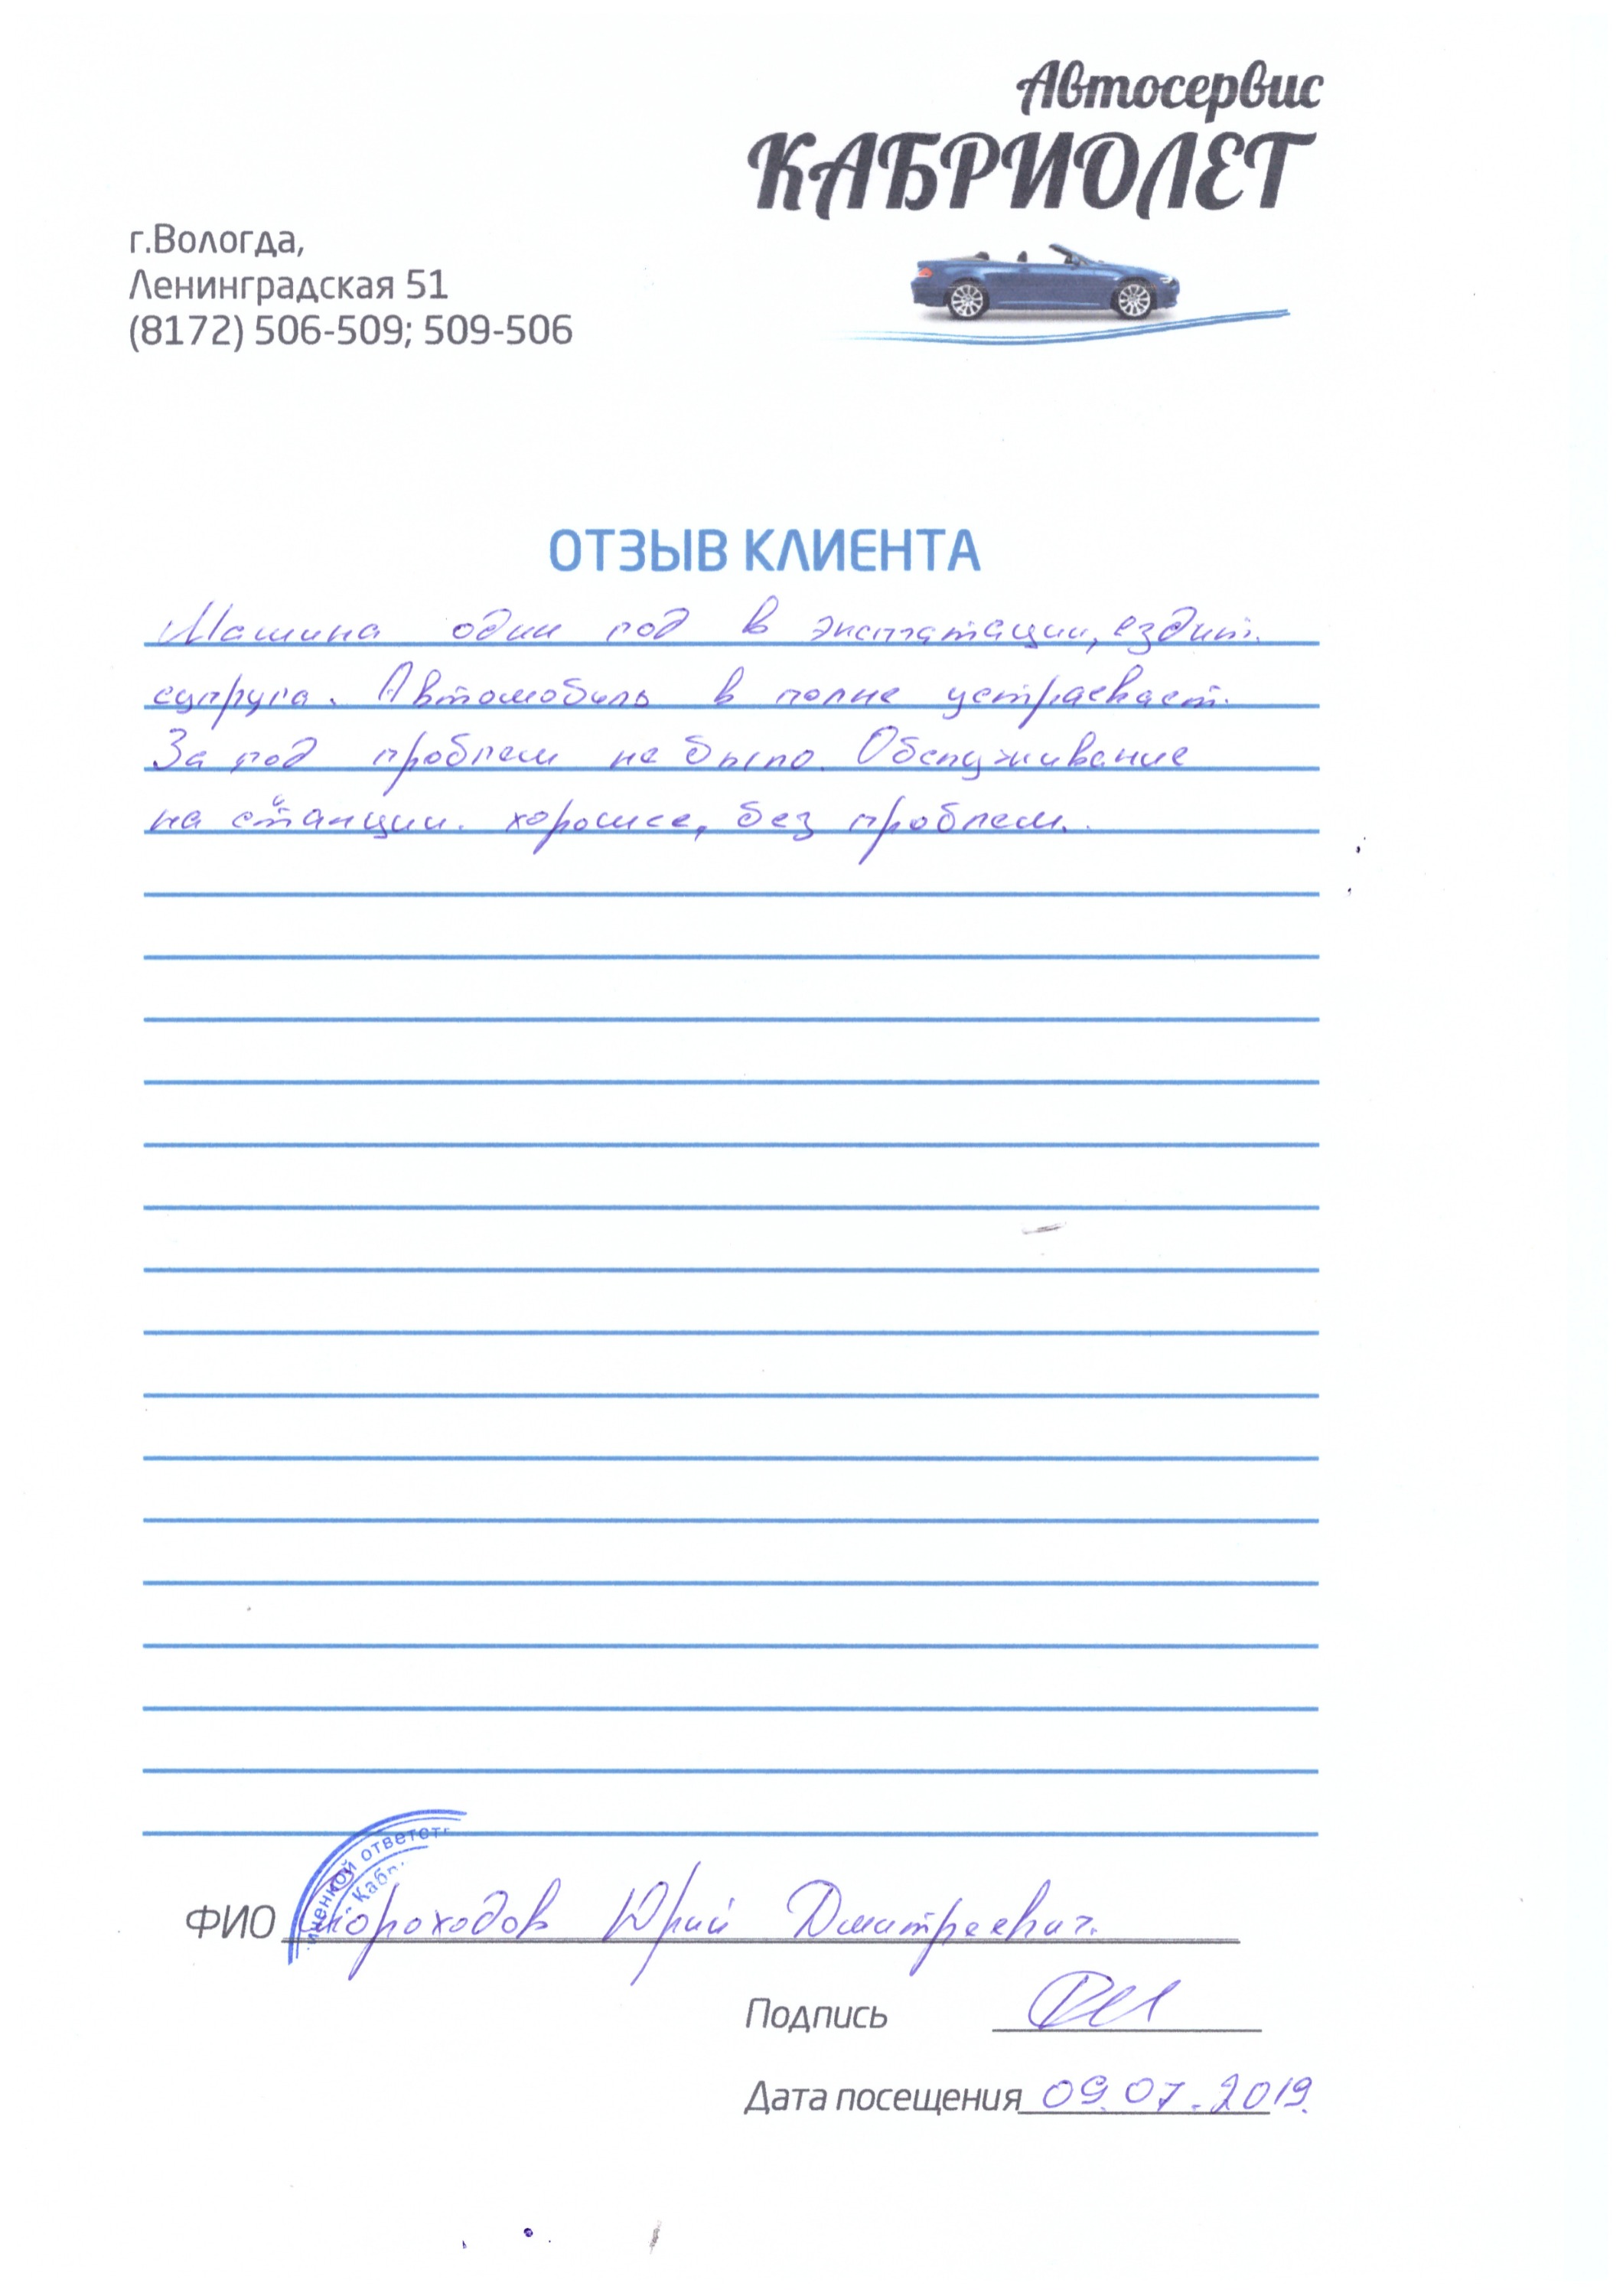 Автосервис
КАБРИОЛЕТ
г.Вологда,
Ленинградская 51
(8172) 506-509; 509-506
ОТЗЫВ КЛИЕНТА
Машина один год в эксплатации, ездит
супруга. Автомобиль в полне устраевает.
За год проблем не было. Обслуживание
на станции хорошее, без проблем.
ФИО Скороходов Юрий Дмитреевич
Подпись
Дата посещения 09.07.2019.